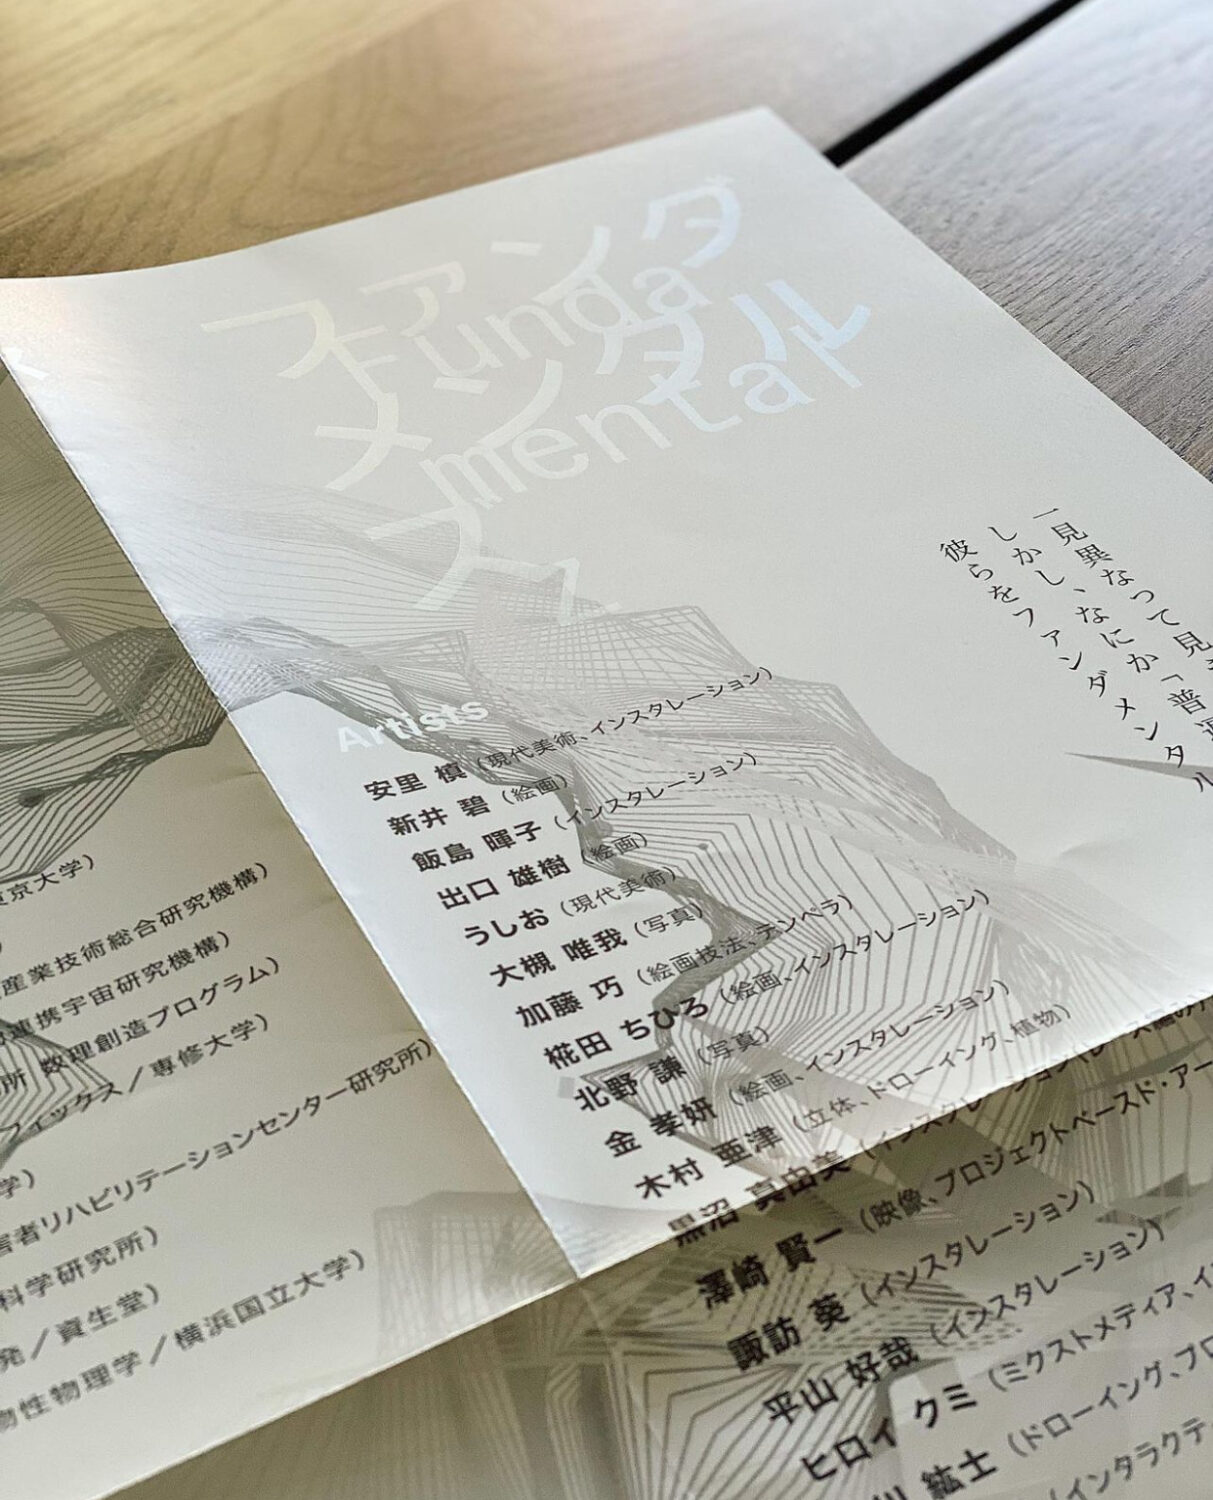 ファンダ
Funda
メンタル
mental
ズ
z
一見異なって見
しかし、なにか「普遍
彼らをファンダメンタル
Artists
安里 槙（現代美術、インスタレーション）
新井 碧（絵画）
飯島 暉子（インスタレーション）
出口 雄樹（絵画）
うしお（現代美術）
大槻 唯我（写真）
加藤 巧（絵画技法、テンペラ）
椛田 ちひろ（絵画、インスタレーション）
北野 謙（写真）
金 孝妍（絵画、インスタレーション）
木村 亜津（立体、ドローイング、植物）
黒沼 真由美（インスタレーション
澤崎 賢一（映像、プロジェクトベースド・アー
諏訪 葵（インスタレーション）
平山 好哉（インスタレーション）
ヒロイ クミ（ミクストメディア、イ
川 紘士（ドローイング、プロ
（インタラクテ
東京大学）
）
産業技術総合研究機構）
連携宇宙研究機構）
所 数理創造プログラム）
フィックス／専修大学）
害者リハビリテーションセンター研究所）
学）
科学研究所）
発／資生堂）
物性物理学／横浜国立大学）